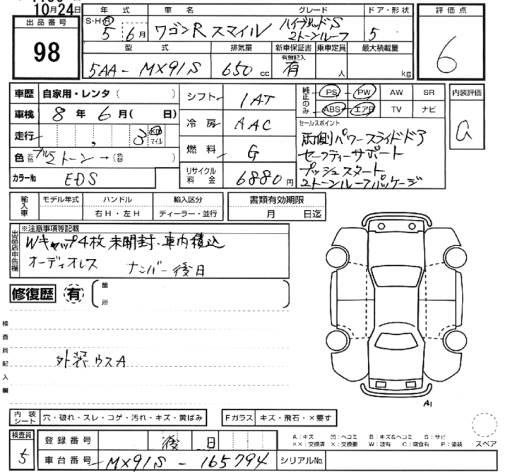 10月24日
出品番号
98
年式 車名 グレード ドア・形状
S・H・R
5年 6月 ワゴンR スマイル ハイブリッドS 2トーンルーフ 5
評価点
6
型式 排気量 新車保証書 乗車定員 最大積載量
有無記入
5AA-MX91S 650cc 有 人 kg
車歴 自家用・レンタ( )
車検 8年 6月( 日)
走行 , 3 マイル
色 2トーン→
カラーNo EDS
シフト 1AT
冷房 AAC
燃料 G
リサイクル料金 6880円
純正のみ
PS PW AW SR
ABS エアB TV ナビ
内装評価
a
セールスポイント
両側パワースライドドア
セーフティーサポート
プッシュスタート
2トーンルーフパッケージ
輸入車 モデル年式 ハンドル 輸入区分
右H・左H ディーラー・並行
書類有効期限
月 日迄
出品店申告欄
※注意事項等記載
Wキャップ4枚 未開封・車内積込
オーディオレス ナンバー後日
修復歴 有 箇所
検査員記入欄
外装ウスA
A1
内装シート 穴・破れ・スレ・コゲ・汚れ・キズ・黄ばみ
Fガラス キズ・飛石・×要す
検査員
5
登録番号 後日
車台番号 MX91S-165794 シリアルNo.
A:キズ U:ヘコミ B:キズ&ヘコミ S:サビ
××:交換済 X:交換要 W:波有 C:腐食 P:塗装 スペア